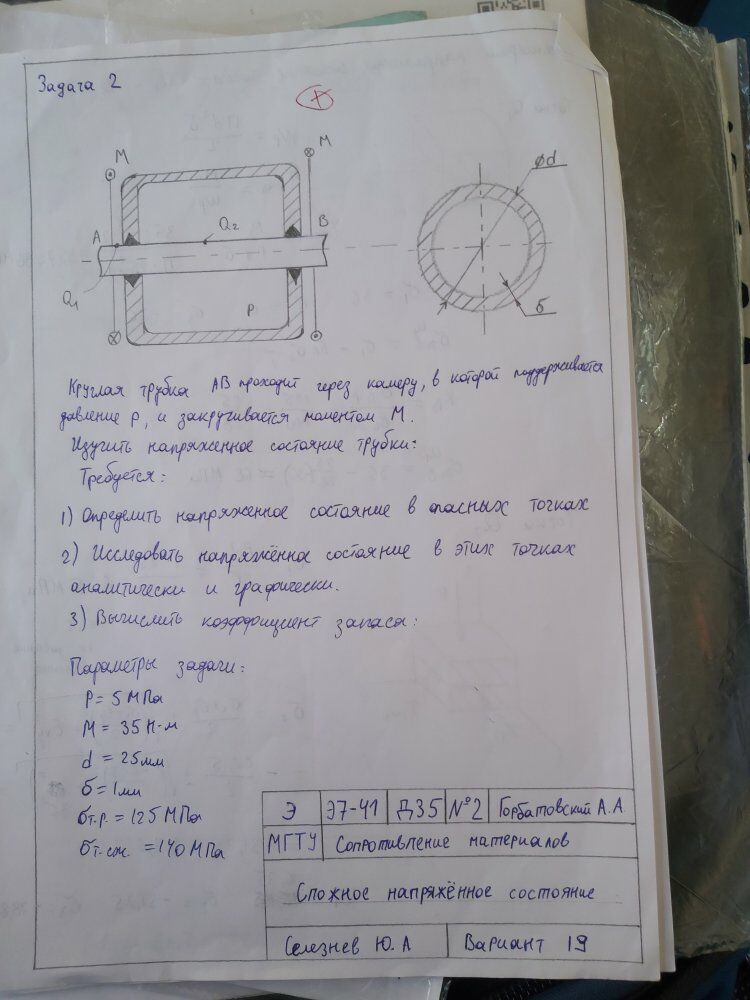 Задача 2
М
М
А
Q₂
В
Q₁
Р
⌀d
δ
Круглая трубка АВ проходит через камеру, в которой поддерживается
давление р, и закручивается моментом М.
Изучить напряженное состояние трубки:
Требуется:
1) Определить напряженное состояние в опасных точках
2) Исследовать напряжённое состояние в этих точках
аналитически и графически.
3) Вычислить коэффициент запаса:
Параметры задачи:
Р = 5 МПа
М = 35 Н·м
d = 25мм
δ = 1мм
σт.р. = 125 МПа
σт.сж. = 140 МПа
Э Э7-41 Д35 №2 Горбатовский А.А.
МГТУ Сопротивление материалов
Сложное напряжённое состояние
Селезнев Ю.А Вариант 19